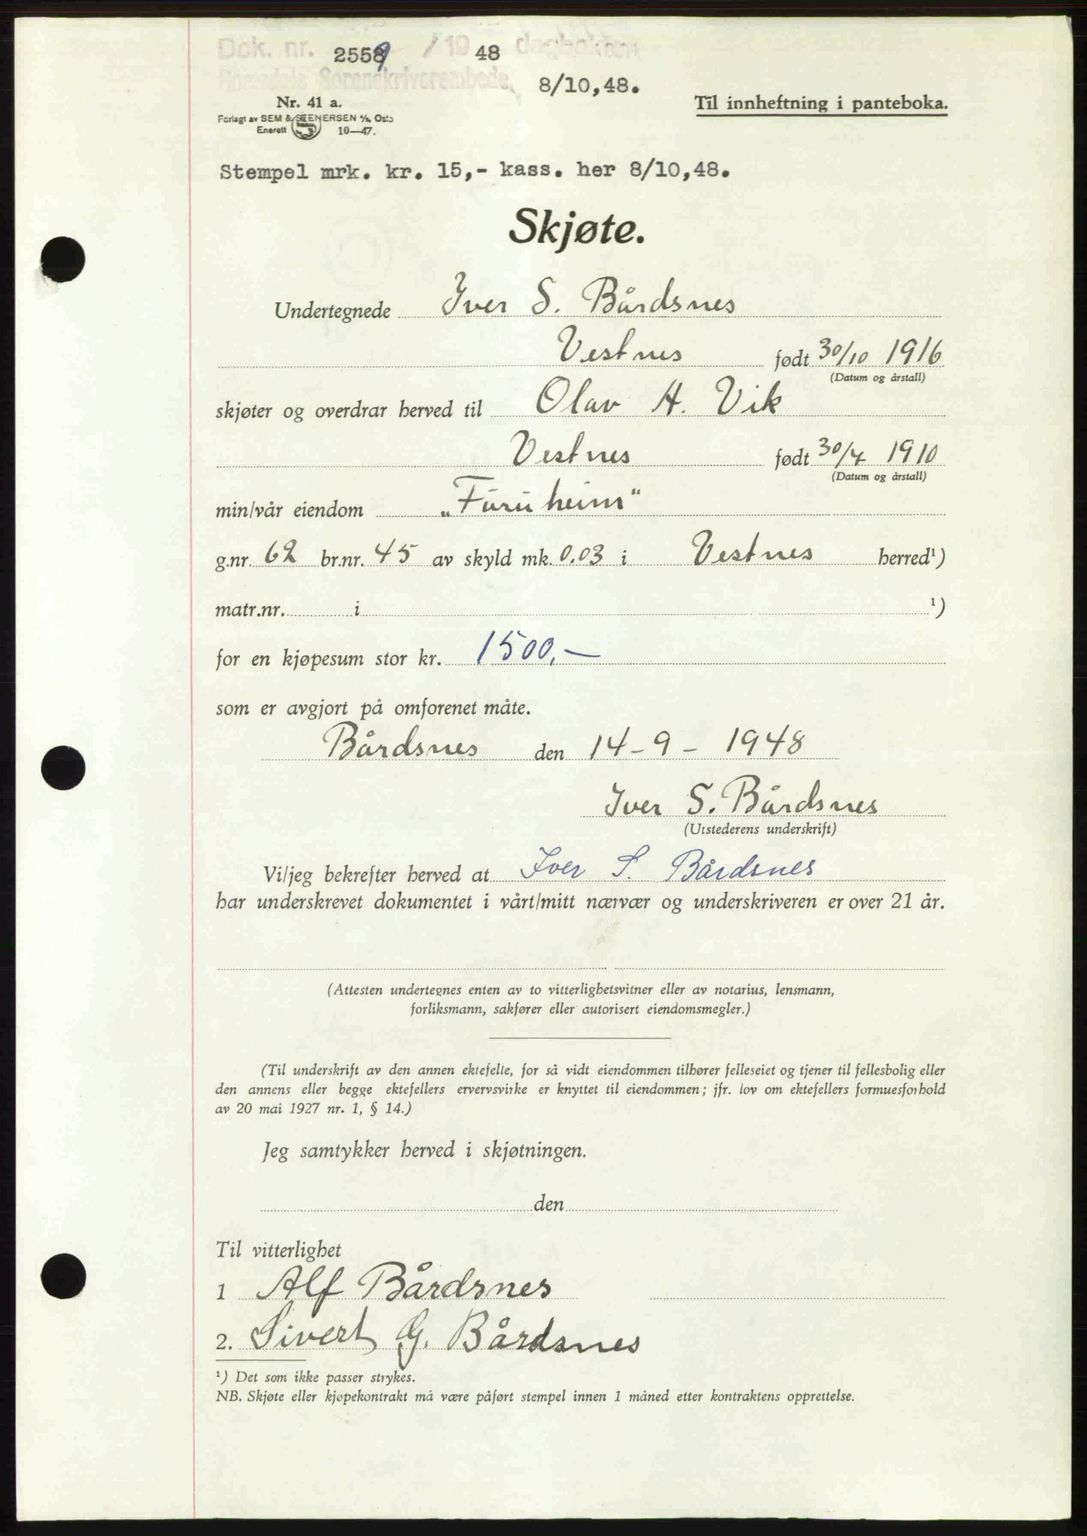 Dok. nr. 2559 /19 48 dagboken
Romsdals Sorenskriverembede,
8/10,48.
Nr. 41 a.
Forlagt av SEM & STENERSEN A/S, Oslo
Enerett 10—47.
Til innheftning i panteboka.
Stempel mrk. kr. 15,- kass. her 8/10,48.
Skjøte.
Undertegnede Iver S. Bårdsnes
Vestnes født 30/10 1916
(Datum og årstall)
skjøter og overdrar herved til Olav H. Vik
Vestnes født 30/4 1910
(Datum og årstall)
min/vår eiendom „Furuheim"
g.nr. 62 br.nr. 45 av skyld mk. 0.03 i Vestnes herred¹)
matr.nr. i ¹)
for en kjøpesum stor kr. 1500,—
som er avgjort på omforenet måte.
Bårdsnes den 14-9-1948
Iver S. Bårdsnes
(Utstederens underskrift)
Vi/jeg bekrefter herved at Iver S. Bårdsnes
har underskrevet dokumentet i vårt/mitt nærvær og underskriveren er over 21 år.
(Attesten undertegnes enten av to vitterlighetsvitner eller av notarius, lensmann,
forliksmann, sakfører eller autorisert eiendomsmegler.)
(Til underskrift av den annen ektefelle, for så vidt eiendommen tilhører felleseiet og tjener til fellesbolig eller
den annens eller begge ektefellers ervervsvirke er knyttet til eiendommen; jfr. lov om ektefellers formuesforhold
av 20 mai 1927 nr. 1, § 14.)
Jeg samtykker herved i skjøtningen.
den
Til vitterlighet
1 Alf Bårdsnes
2. Sivert G. Bårdsnes
¹) Det som ikke passer strykes.
NB. Skjøte eller kjøpekontrakt må være påført stempel innen 1 måned etter kontraktens opprettelse.